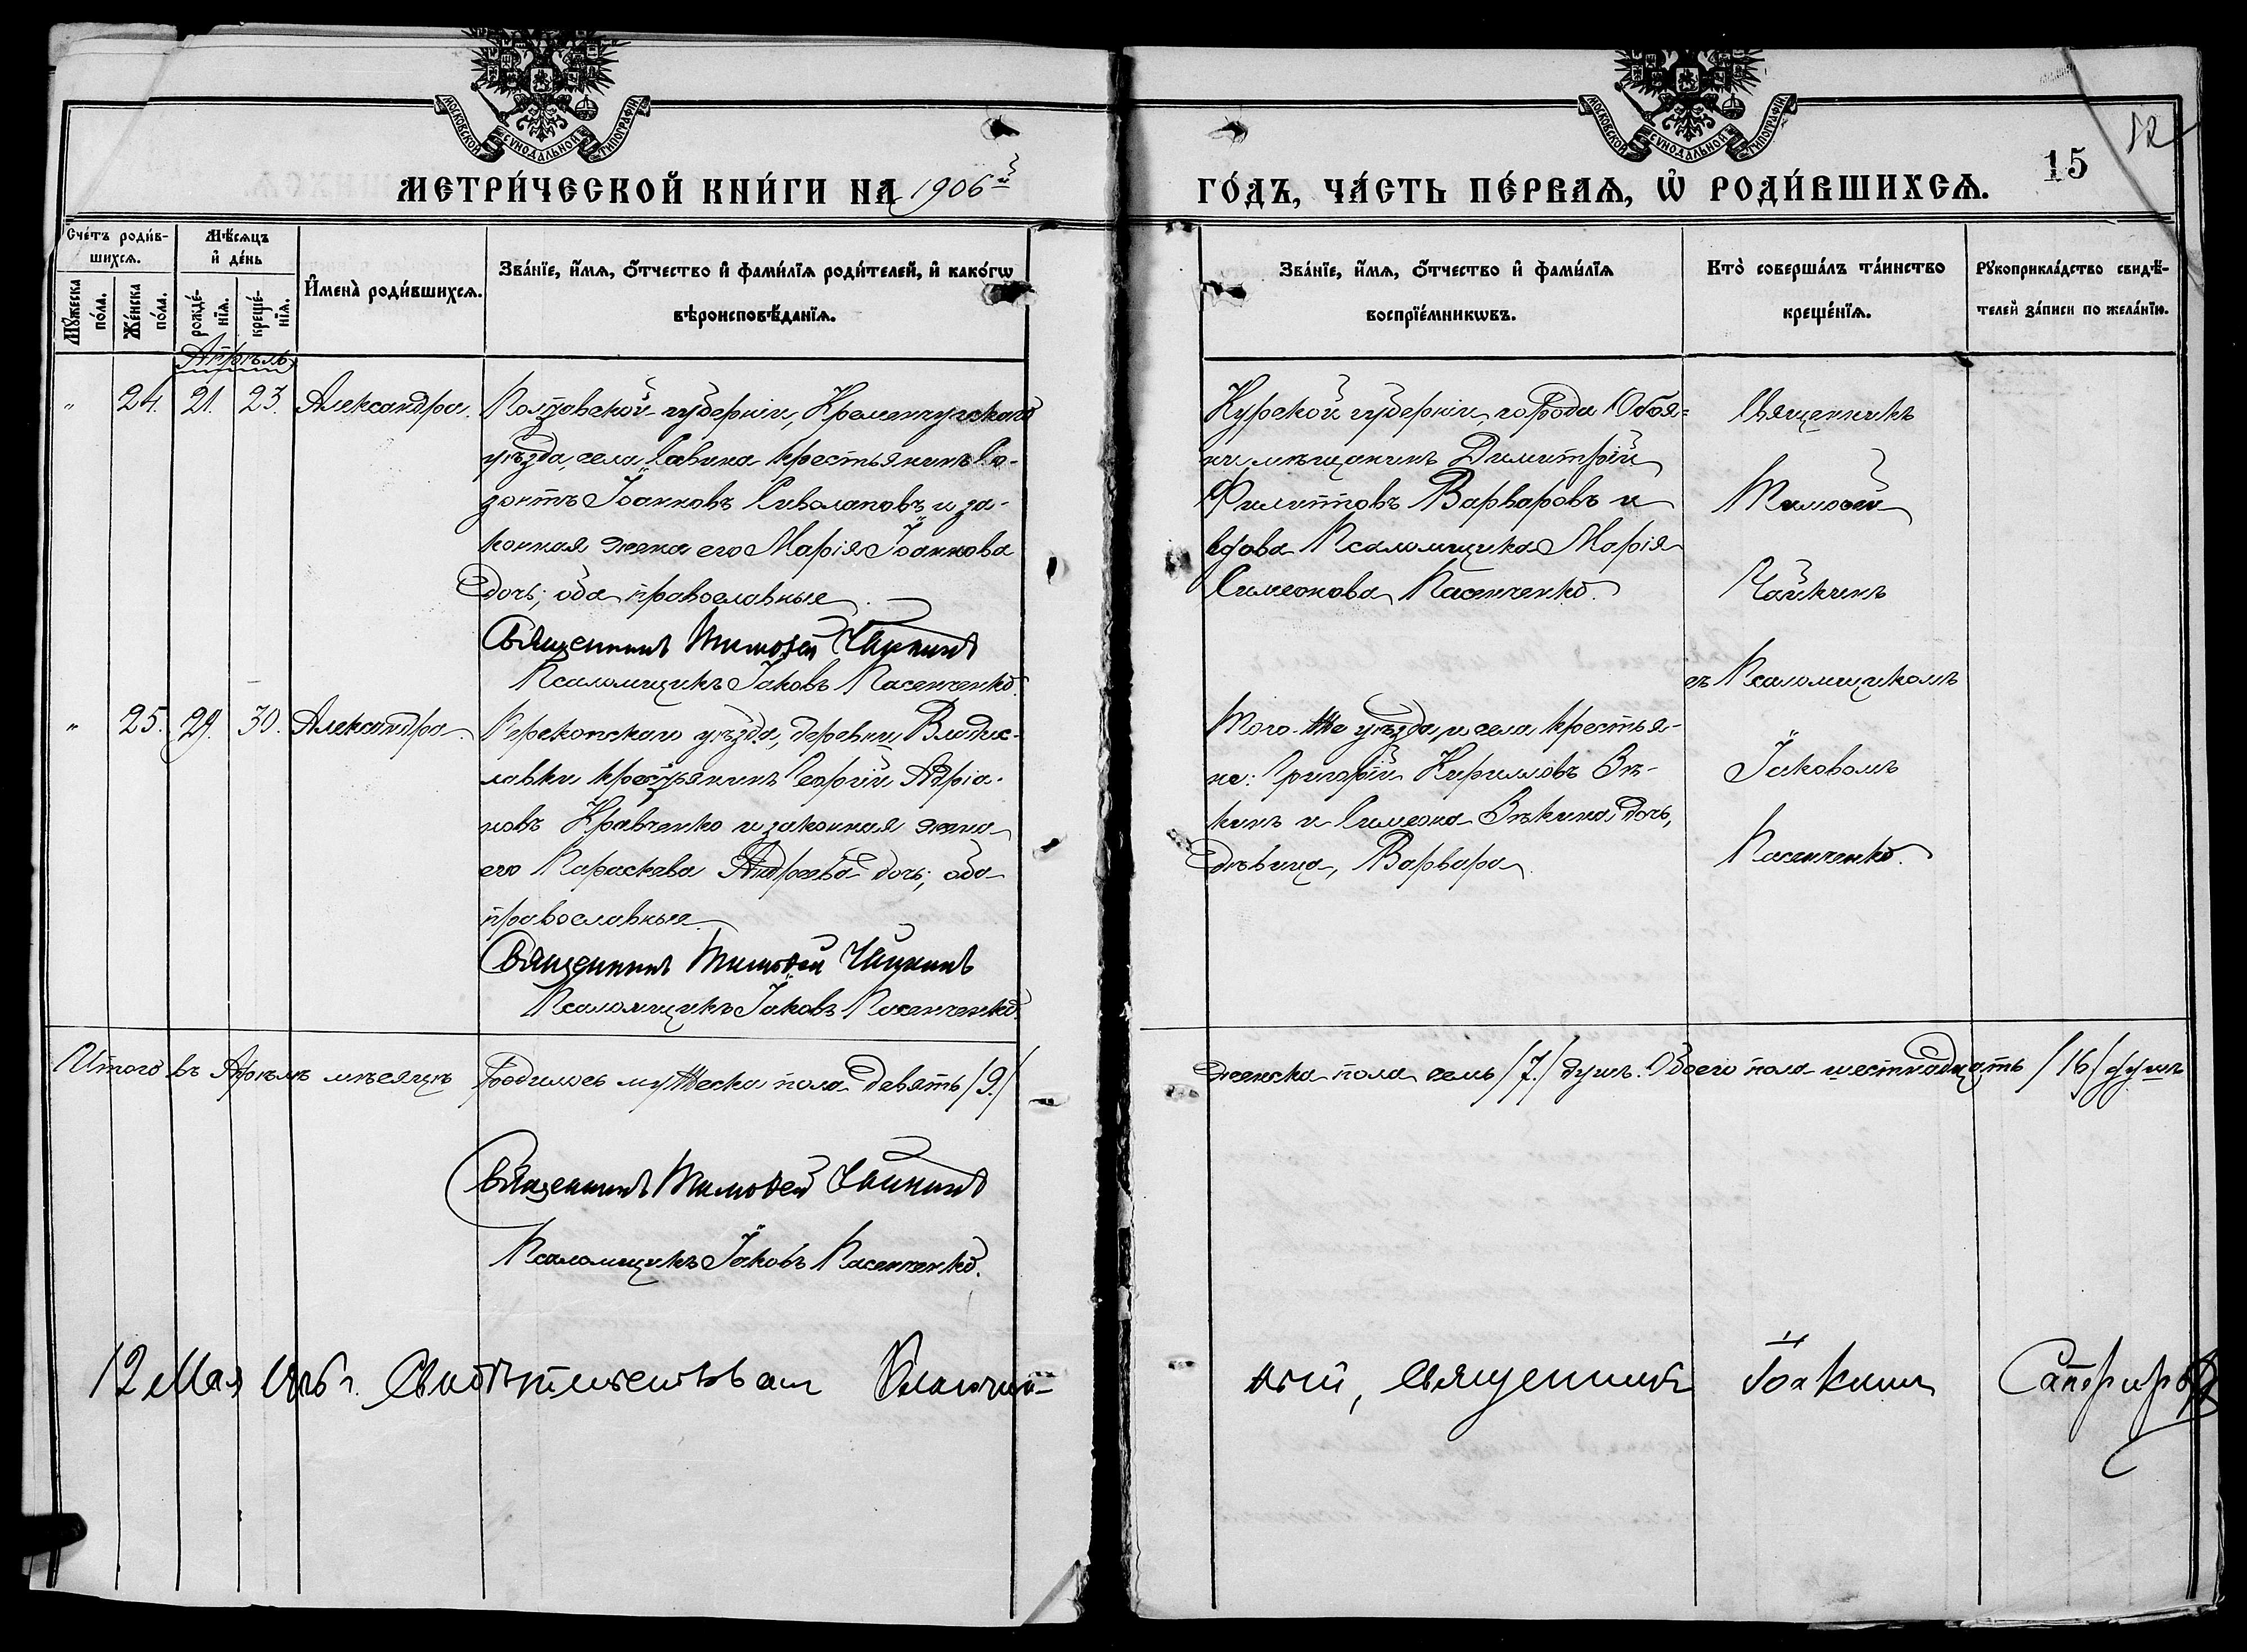 МОСКОВСКОЙ СѴНОДАЛЬНОЙ ТИПОГРАФІИ
МОСКОВСКОЙ СѴНОДАЛЬНОЙ ТИПОГРАФІИ
12
15
МЕТРИ́ЧЕСКОЙ КНИ́ГИ НА 1906й
ГО́ДЪ, ЧА́СТЬ ПЕ́РВАѦ, Ѡ҆ РОДИ́ВШИХСѦ.
Сче́тъ роди́в-
шихсѧ.
Мѣ́сѧцъ
и҆ де́нь
Мꙋ́жеска по́ла.
Же́нска по́ла.
рожде́-нїѧ.
креще́-нїѧ.
И҆мена̀ роди́вшихсѧ.
Зва́нїе, и҆́мѧ, ѻ҆́тчество и҆ фами́лїѧ роди́телей, и҆ како́гѡ
вѣроисповѣ́данїѧ.
Зва́нїе, и҆́мѧ, ѻ҆́тчество и҆ фами́лїѧ
воспрїе́мникѡвъ.
Кто̀ соверша́лъ та́инство
креще́нїѧ.
Рꙋкоприкла́дство свидѣ́-
телей за́писи по жела́нїю.
Апрѣль
" 24. 21. 23. Александра.
Полтавской губерніи, Кременчугскаго
уѣзда, села Савина крестьянинъ Со-
зонтъ Іоанновъ Сиволаповъ и за-
конная жена его Марія Іоаннова
дочь; оба православные.
Священникъ Тимоѳей Чайкинъ
Псаломщикъ Іаковъ Пасенченко.
Курской губерніи, города Обоя=
ни мѣщанинъ Димитрій
Филипповъ Варваровъ и
вдова Псаломщика Марія
Симеонова Пасенченко.
Священникъ
Тимоѳей
Чайкинъ
съ Псаломщикомъ
Іаковомъ
Пасенченко.
" 25. 29. 30. Александра
Перекопскаго уѣзда, деревни Владис-
лавки крестьянинъ Георгій Адріа-
новъ Кравченко и законная жена
его Параскева Андреева дочь; оба
православные.
Священникъ Тимоѳей Чайкинъ
Псаломщикъ Іаковъ Пасенченко.
Того же уѣзда и села крестья-
не: Григорій Кирилловъ Вѣ-
кинъ и Симеона Вѣкина дочь,
дѣвица, Варвара.
Итого въ Апрѣлѣ мѣсяцѣ родилось мужеска пола девять /9./
женска пола семь /7./ душъ. Обоего пола шестнадцать /16/ душъ
Священникъ Тимоѳей Чайкинъ
Псаломщикъ Іаковъ Пасенченко.
12 Мая 1906 г. Свидѣтельствовалъ Благочин-
ный, священникъ Іоакимъ